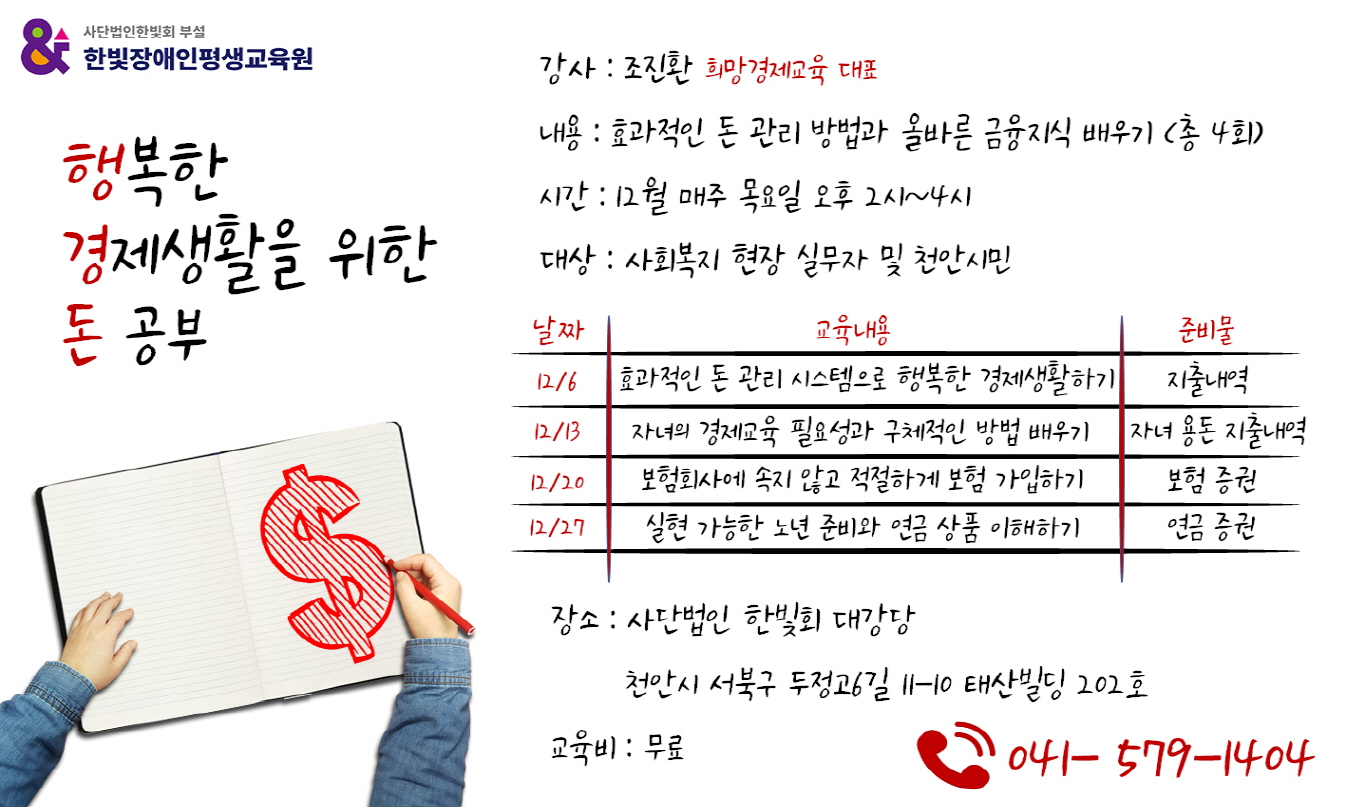 사단법인한빛회 부설
한빛장애인평생교육원
행복한
경제생활을 위한
돈 공부
강사 : 조진환 희망경제교육 대표
내용 : 효과적인 돈 관리 방법과 올바른 금융지식 배우기 (총 4회)
시간 : 12월 매주 목요일 오후 2시~4시
대상 : 사회복지 현장 실무자 및 천안시민
날짜 교육내용 준비물
12/6 효과적인 돈 관리 시스템으로 행복한 경제생활하기 지출내역
12/13 자녀의 경제교육 필요성과 구체적인 방법 배우기 자녀 용돈 지출내역
12/20 보험회사에 속지 않고 적절하게 보험 가입하기 보험 증권
12/27 실현 가능한 노년 준비와 연금 상품 이해하기 연금 증권
장소 : 사단법인 한빛회 대강당
천안시 서북구 두정고6길 11-10 태산빌딩 202호
교육비 : 무료
041- 579-1404